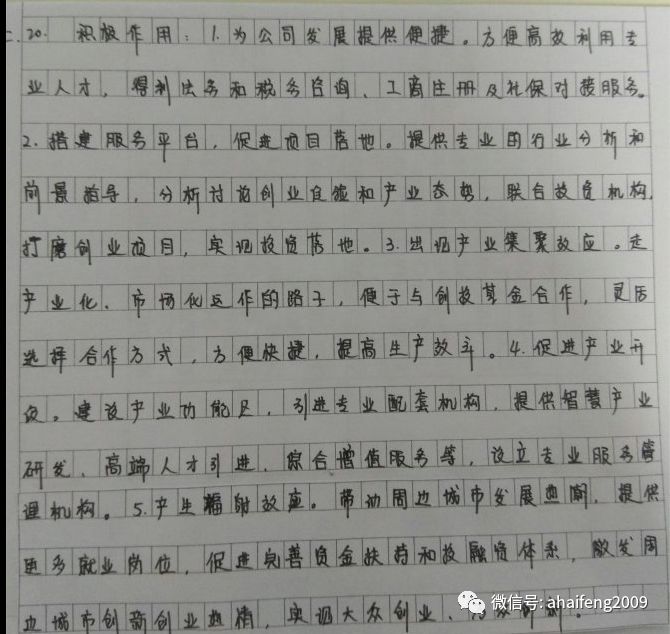 二. 20. 积极作用：1. 为公司发展提供便捷。方便高效利用专
业人才，得到法务和税务咨询、工商注册及社保对接服务。
2. 搭建服务平台，促进项目落地。提供专业的行业分析和
前景指导，分析讨论创业经验和产业态势，联合投资机构，
打磨创业项目，实现投资落地。3. 出现产业集聚效应。走
产业化、市场化运作的路子，便于与创投基金合作，灵活
选择合作方式，方便快捷，提高生产效率。4. 促进产业开
发。建设产业功能区，引进专业配套机构，提供智慧产业
研发、高端人才引进、综合增值服务等，设立专业服务管
理机构。5. 产生辐射效应。带动周边城市发展，提供
更多就业岗位，促进完善资金扶持和投融资体系，激发周
边城市创新创业热情，实现大众创业、万众创新。
微信号: ahaifeng2009